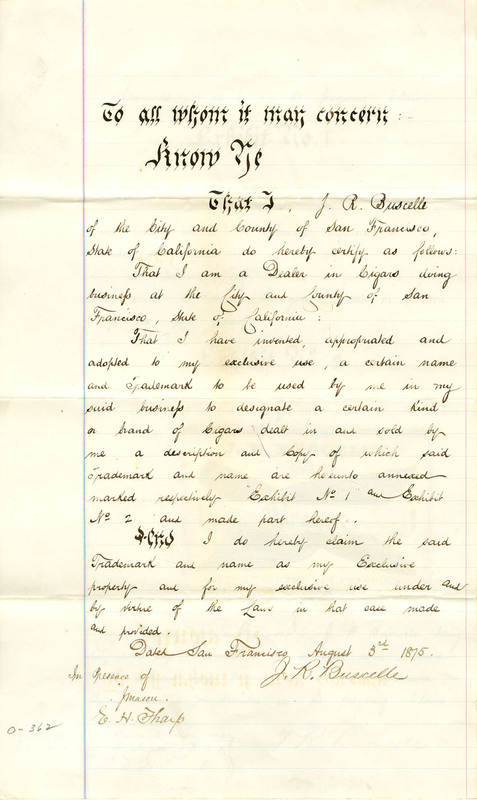 To all whom it may concern:
Know Ye
That I, J. R. Buscelle
of the City and County of San Francisco,
State of California do hereby certify as follows:
That I am a Dealer in Cigars doing
business at the City and County of San
Francisco, State of California:
That I have invented, appropriated and
adopted to my exclusive use, a certain name
and Trademark to be used by me in my
said business to designate a certain kind
or brand of Cigars dealt in and sold by
me a description and Copy of which said
Trademark and name are hereunto annexed
marked respectively Exhibit No 1 and Exhibit
No 2 and made part hereof.
And I do hereby claim the said
Trademark and name as my Exclusive
property and for my exclusive use under and
by virtue of the Law in that case made
and provided.
Dated San Francisco August 3rd 1875.
In presence of J. R. Buscelle
E. H. Tharp
O-362